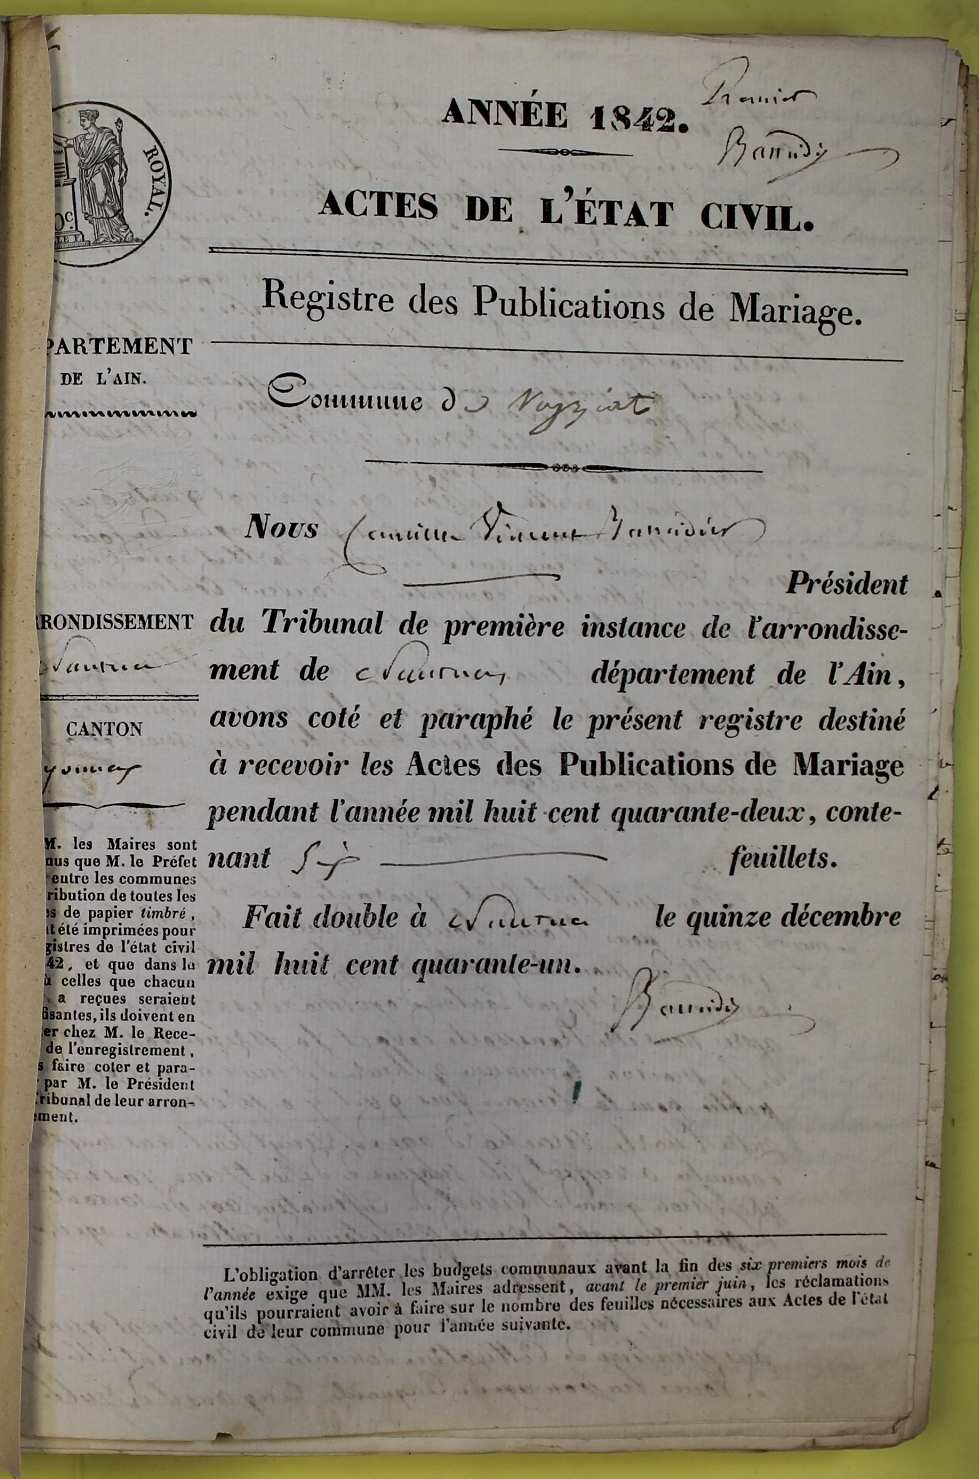 Premier
ANNÉE 1842.
ROYAL.
ACTES DE L'ÉTAT CIVIL.
Registre des Publications de Mariage.
PARTEMENT
DE L'AIN.
Commune de
Nous Camille Vincent
Président
RONDISSEMENT
Nantua
du Tribunal de première instance de l'arrondisse-
ment de Nantua, département de l'Ain,
CANTON
yonnax
avons coté et paraphé le présent registre destiné
à recevoir les Actes des Publications de Mariage
pendant l'année mil huit cent quarante-deux, conte-
nant Six feuillets.
Fait double à Nantua le quinze décembre
mil huit cent quarante-un.
M. les Maires sont
nus que M. le Préfet
entre les communes
ribution de toutes les
s de papier timbré,
t été imprimées pour
gistres de l'état civil
42, et que dans la
à celles que chacun
a reçues seraient
isantes, ils doivent en
er chez M. le Rece-
de l'enregistrement,
s faire coter et para-
par M. le Président
ribunal de leur arron-
ement.
L'obligation d'arrêter les budgets communaux avant la fin des six premiers mois de
l'année exige que MM. les Maires adressent, avant le premier juin, les réclamations
qu'ils pourraient avoir à faire sur le nombre des feuilles nécessaires aux Actes de l'état
civil de leur commune pour l'année suivante.